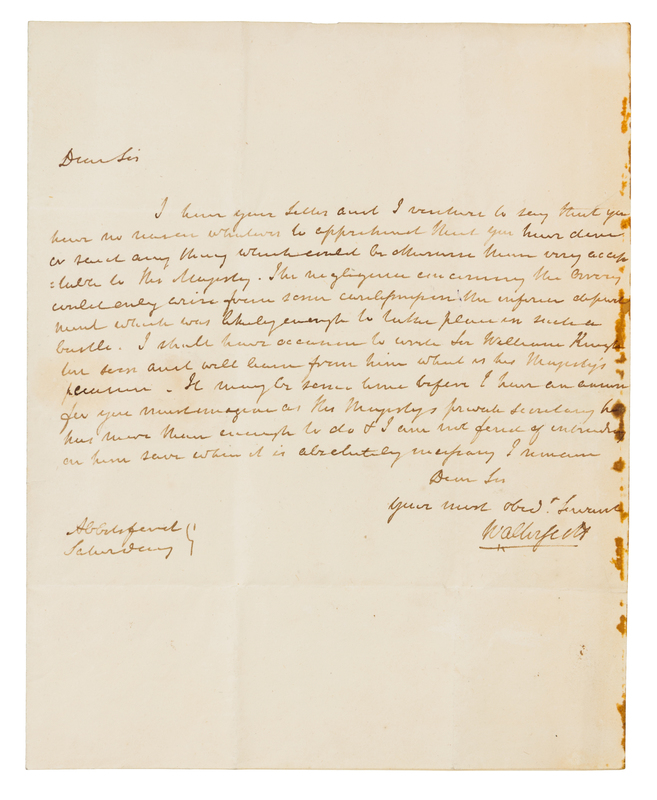 Dear Sir
I have your letter and I venture to say that you
have no reason whatever to apprehend that you have done
or said any thing which could be otherwise than very accep
=table to His Majesty. The negligence concerning the
could only arise from some in the inferior depart
ment which was likely enough to take place in such a
bustle. I shall have occasion to write Sir William
soon and will learn from him what is his Majesty's
pleasure. It may be some time before I have an answer
for you must imagine as His Majesty's private secretary he
has more than enough to do & I am not fond of intruding
on him save when it is absolutely necessary I remain
Dear Sir
Your most obedt Servant
Walter Scott
Abbotsford
Saturday